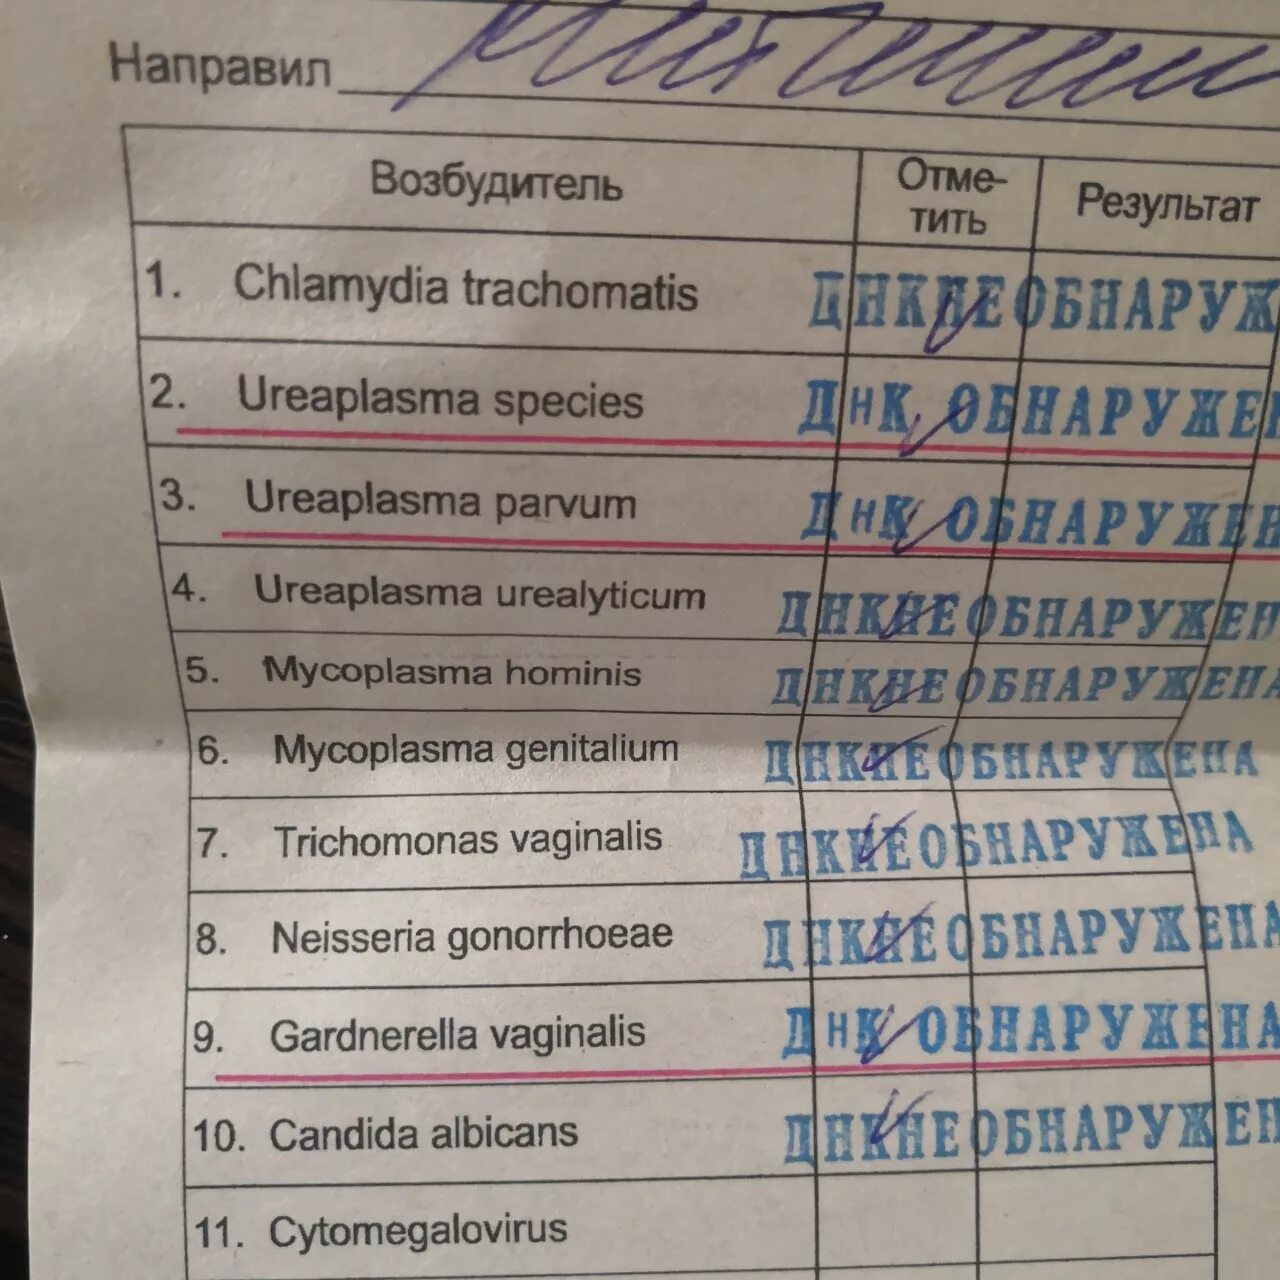 Направил
Возбудитель Отме-тить Результат
1. Chlamydia trachomatis ДНК НЕ ОБНАРУЖ
2. Ureaplasma species ДНК ОБНАРУЖЕ
3. Ureaplasma parvum ДНК ОБНАРУЖЕН
4. Ureaplasma urealyticum ДНК НЕ ОБНАРУЖЕН
5. Mycoplasma hominis ДНК НЕ ОБНАРУЖЕНА
6. Mycoplasma genitalium ДНК НЕ ОБНАРУЖЕНА
7. Trichomonas vaginalis ДНК НЕ ОБНАРУЖЕНА
8. Neisseria gonorrhoeae ДНК НЕ ОБНАРУЖЕНА
9. Gardnerella vaginalis ДНК ОБНАРУЖЕНА
10. Candida albicans ДНК НЕ ОБНАРУЖЕН
11. Cytomegalovirus